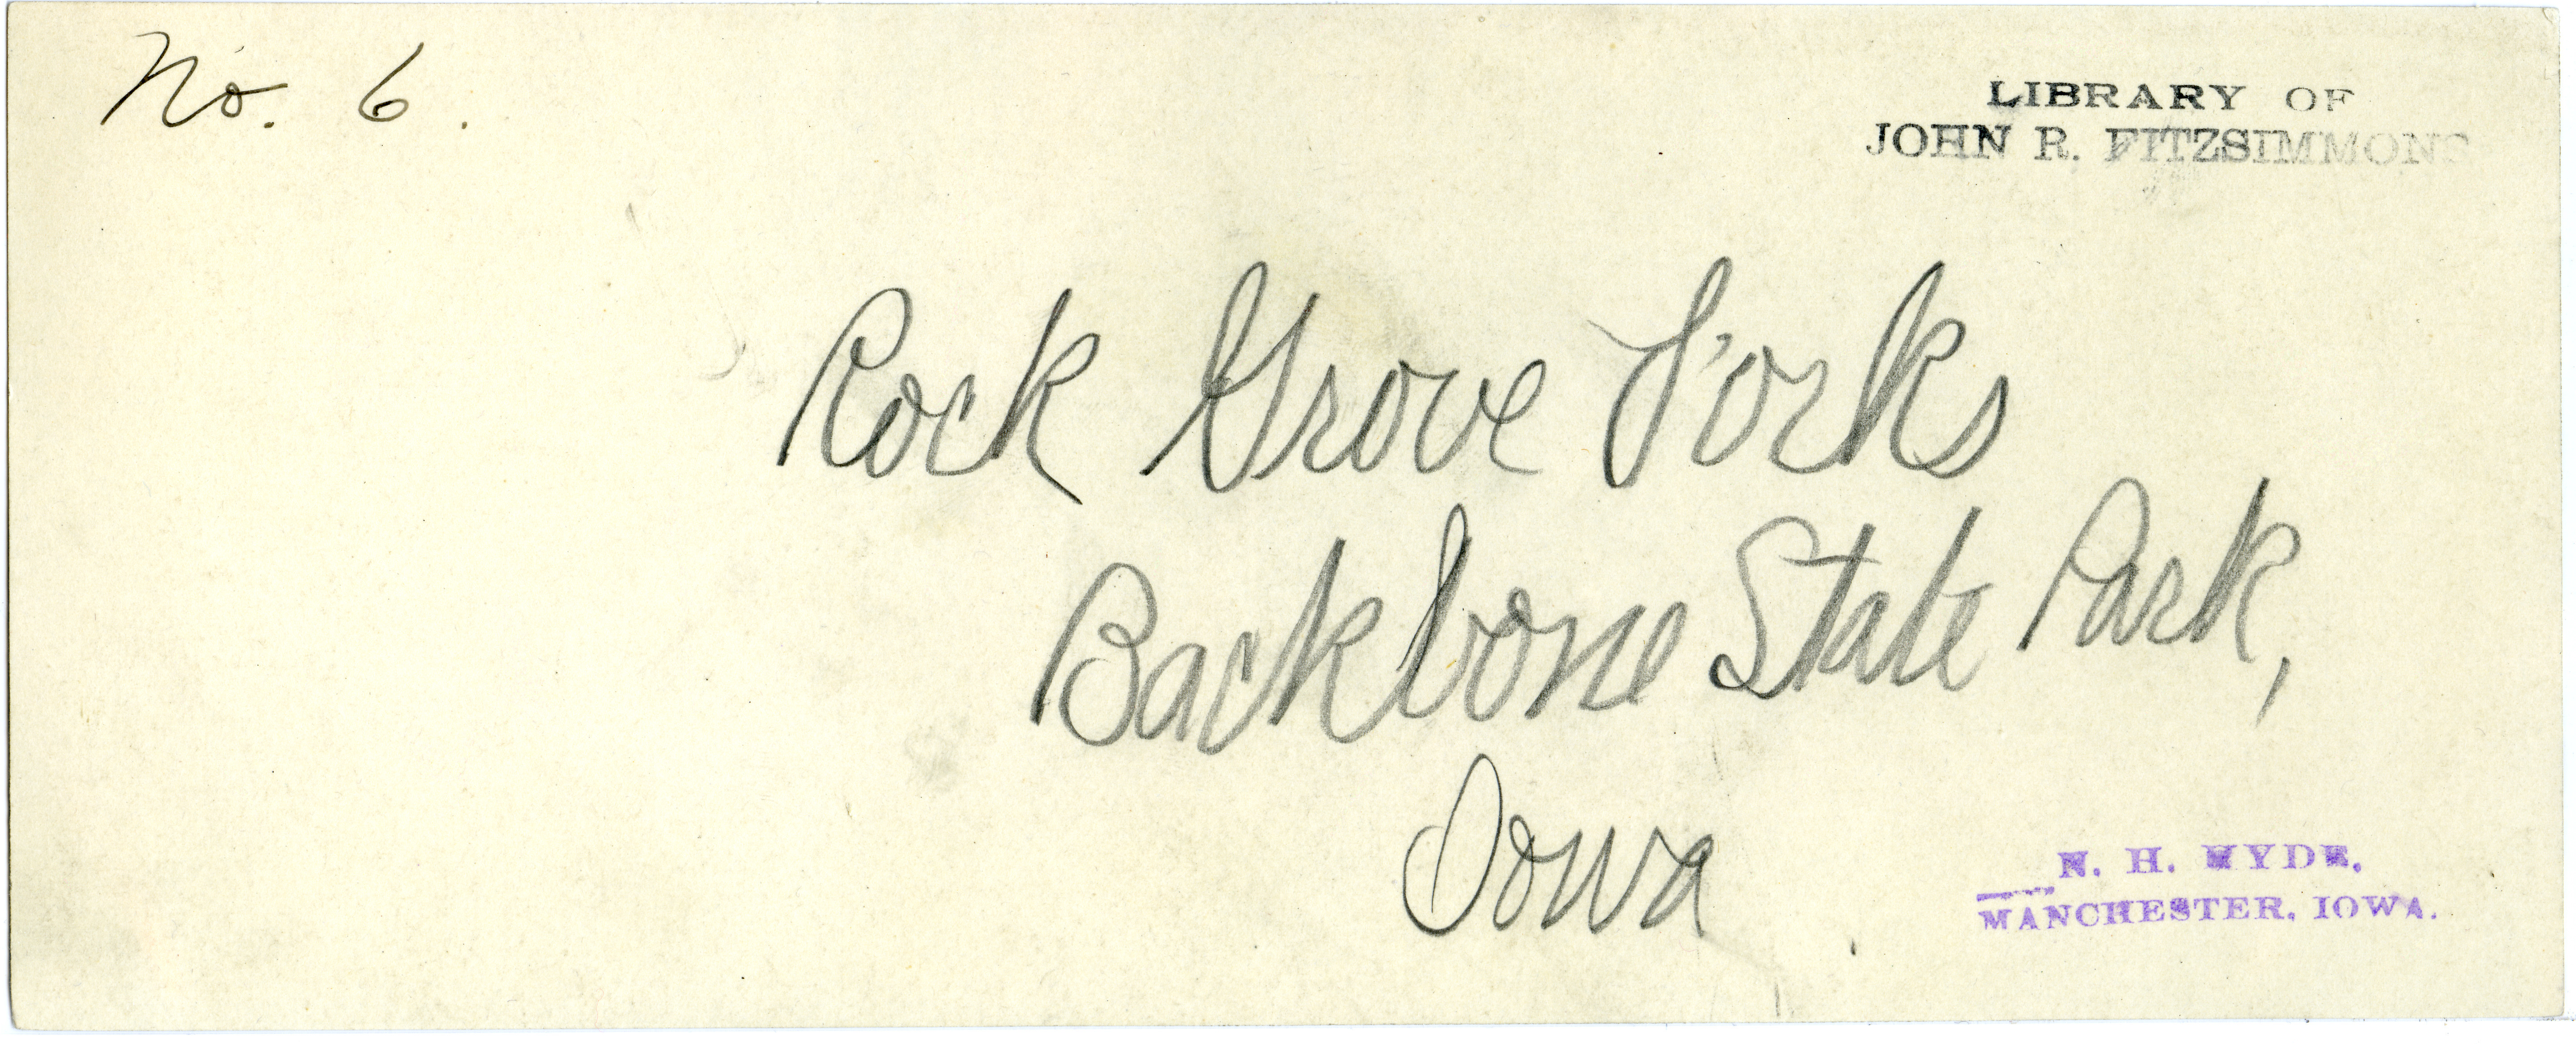 No. 6.
LIBRARY OF
JOHN R. FITZSIMMONS
Rock Grove Forks
Backbone State Park,
Iowa
N. H. HYDE.
MANCHESTER, IOWA.